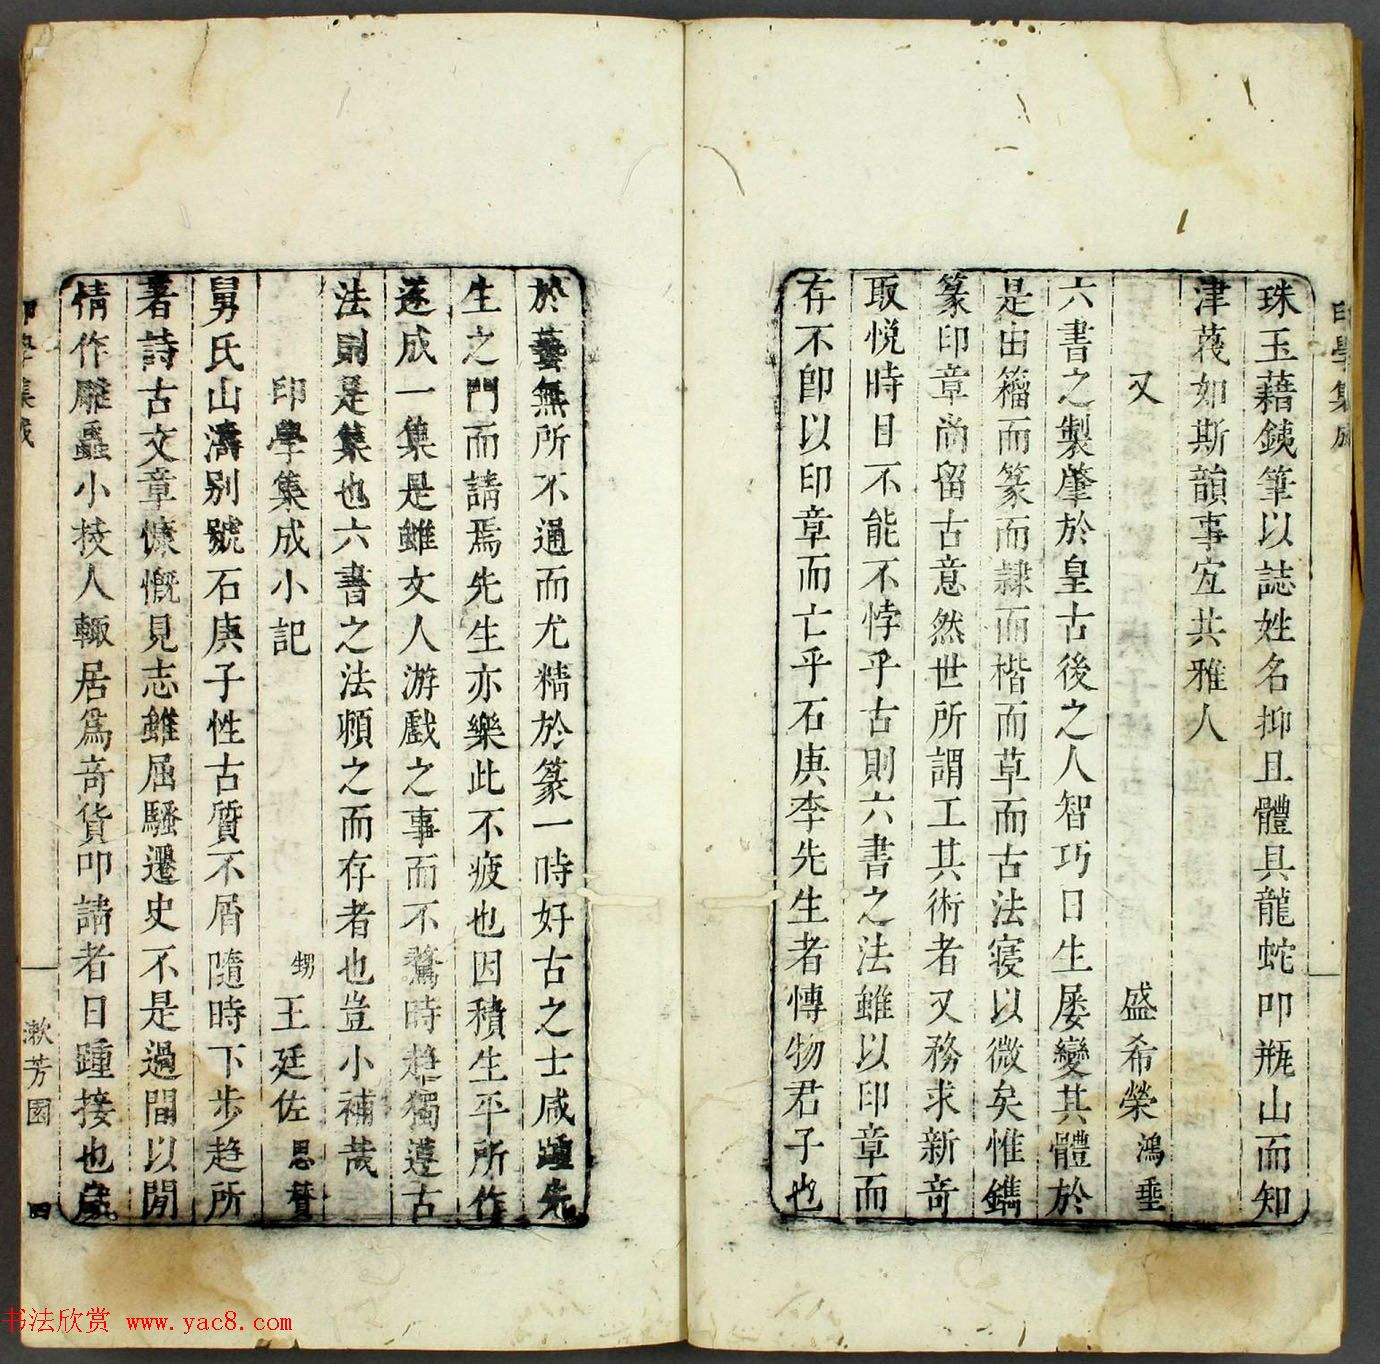 珠玉藉銕筆以誌姓名抑且體具龍蛇叩瓶山而知
津莪如斯韻事宜共雅人
又　盛希榮鴻垂
六書之製肇於皇古後之人智巧日生屡變其體於
是由籀而篆而隸而楷而草而古法寖以微矣惟鐫
篆印章尚留古意然世所謂工其術者又務求新奇
取悅時目不能不悖乎古則六書之法雖以印章而
存不卽以印章而亡乎石庚李先生者愽物君子也
於藝無所不通而尤精於篆一時好古之士咸踵先
生之門而請焉先生亦樂此不疲也因積生平所作
遂成一集是雖文人游戲之事而不騖時趋獨遵古
法則是集也六書之法頼之而存者也豈小補哉
印學集成小記
甥王廷佐思贊
舅氏山濤别號石庚子性古質不屑隨時下步趋所
著詩古文章慷慨見志雖屈騷遷史不是過間以閒
情作雕蟲小技人輙居爲奇貨叩請者日踵接也
印學集成
漱芳園
四
印學集成
书法欣赏 www.yac8.com